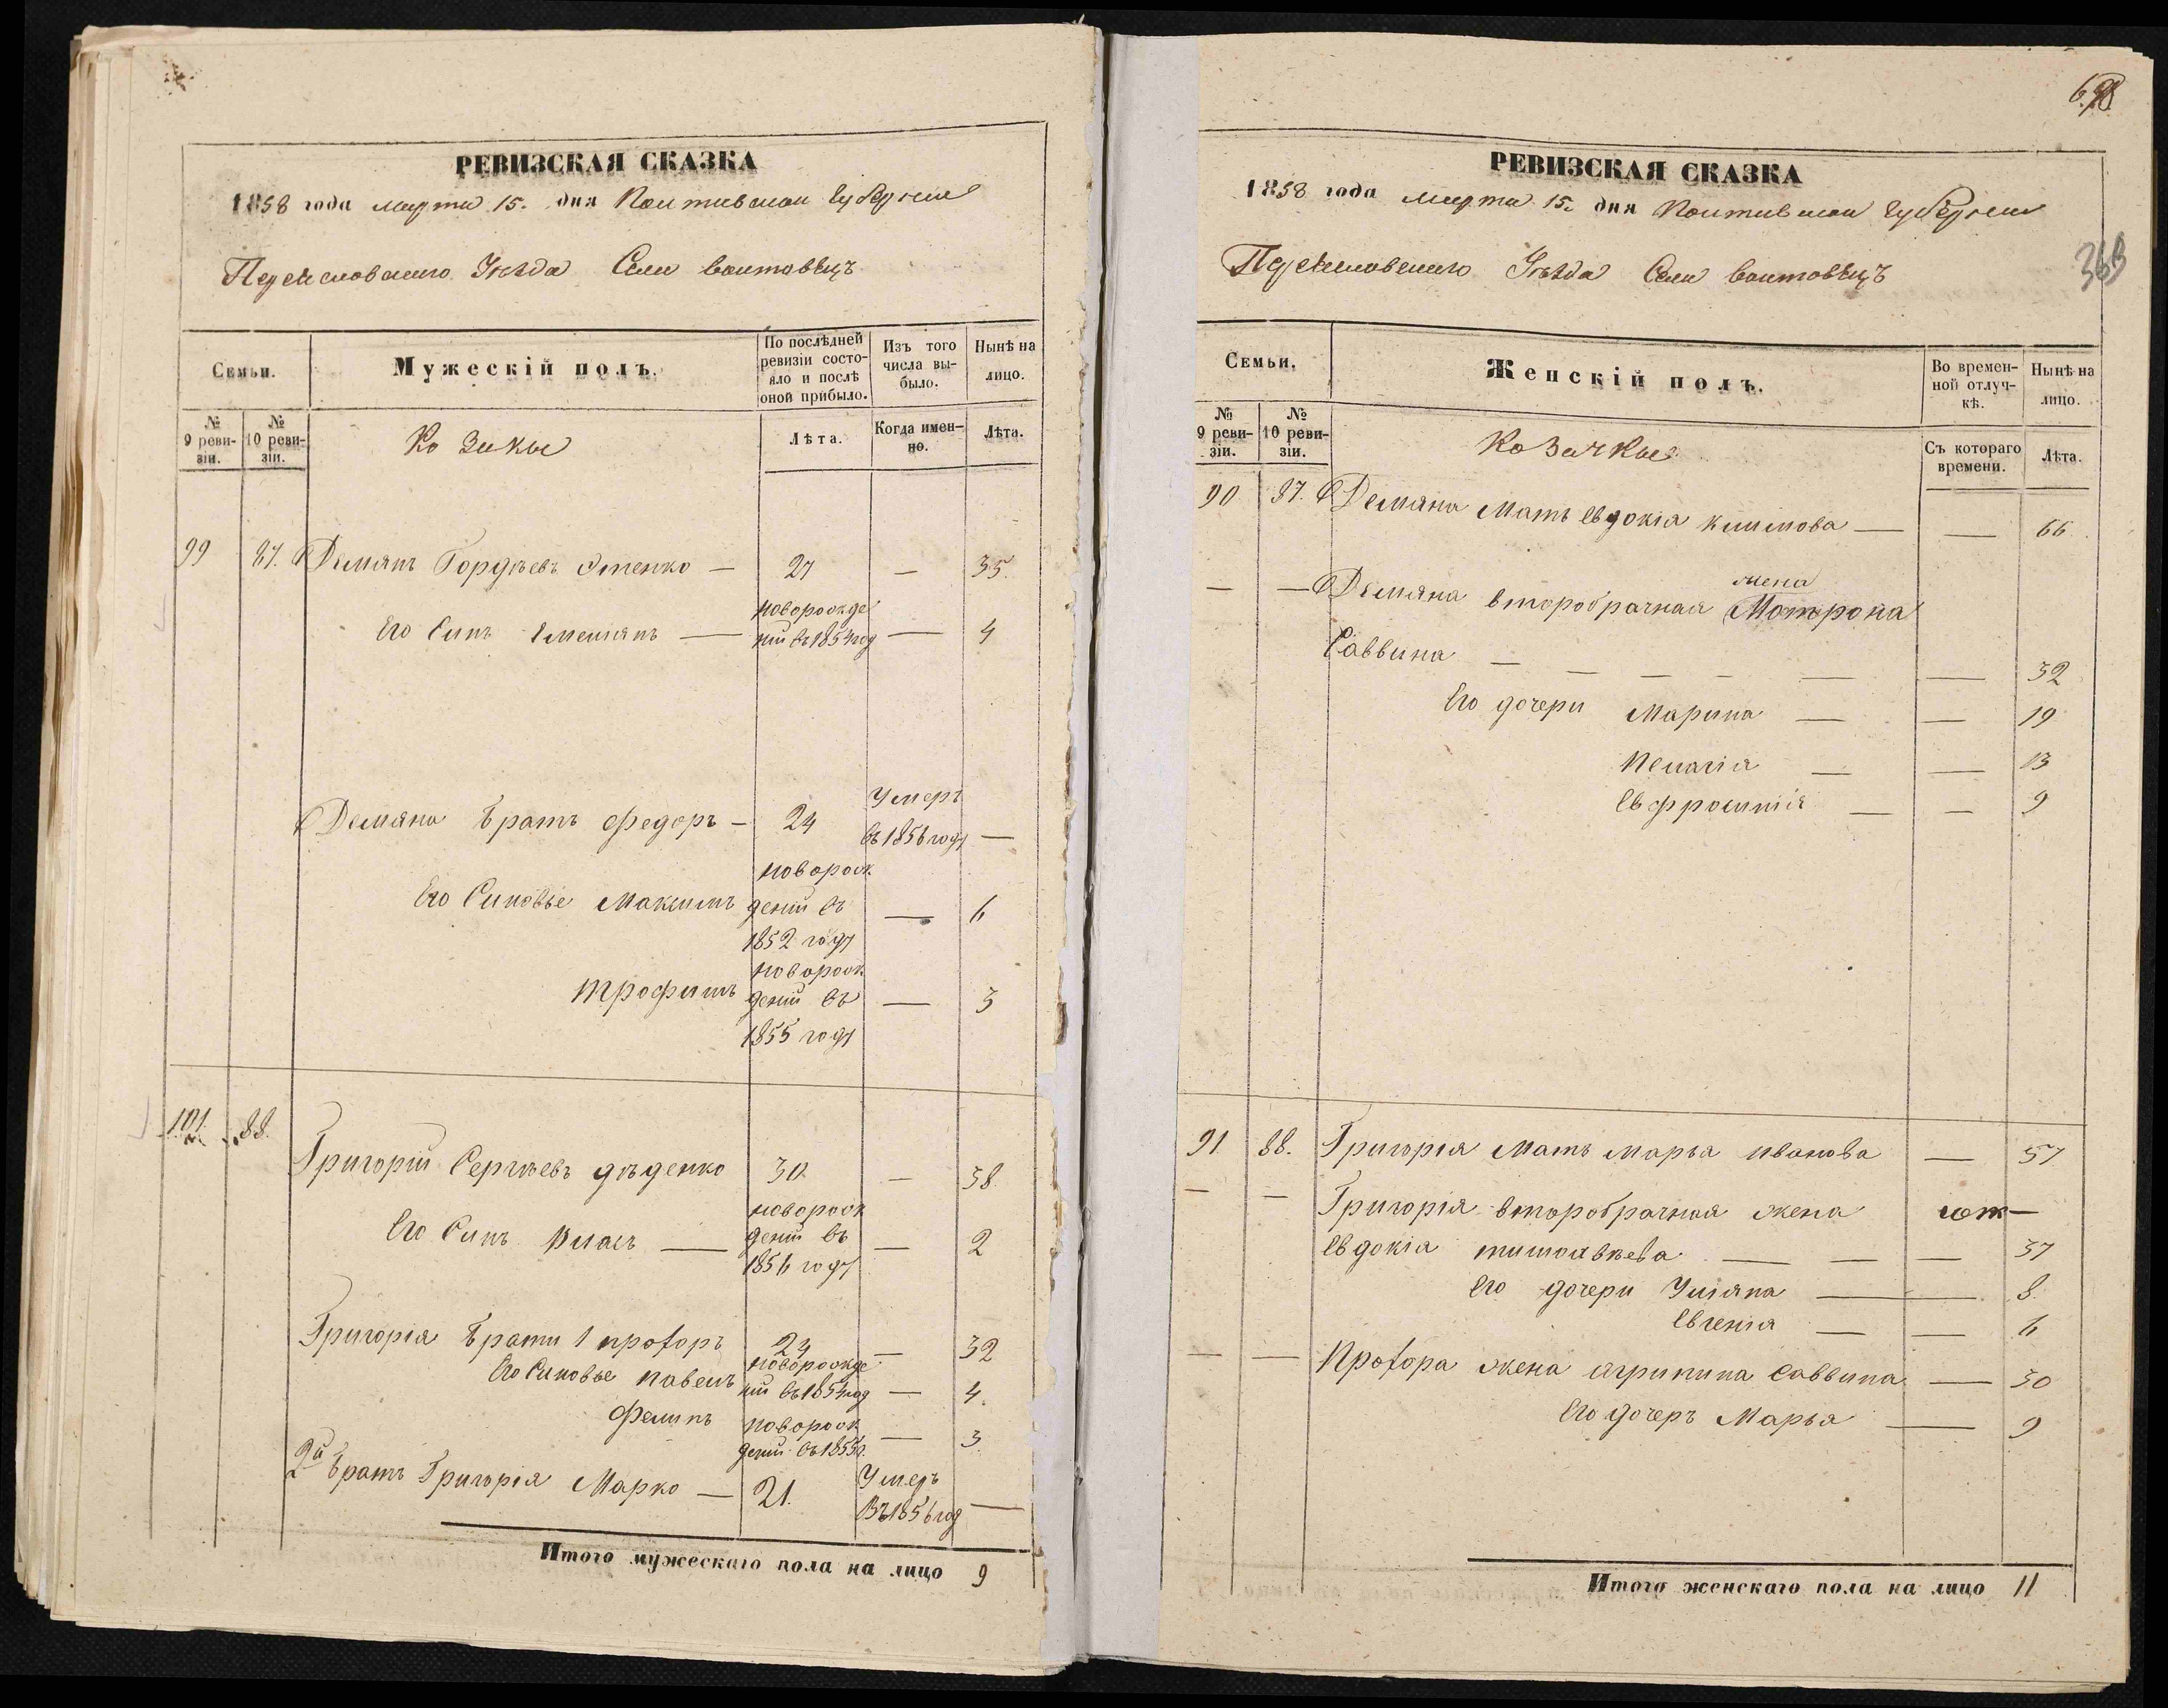 РЕВИЗСКАЯ СКАЗКА
1858 года марта 15. дня Полтавской губернии
Переясловского Уезда Села Воитовецъ
Семьи.
Мужескій полъ.
По послѣдней ревизіи состояло и послѣ оной прибыло.
Изъ того числа выбыло.
Нынѣ на лицо.
№ 9 ревизіи.
№ 10 ревизіи.
Козаки
Лѣта.
Когда именно.
Лѣта.
99 87. Демянъ Гордѣевъ — 27 — 35.
Его Синъ Емелянъ — новорожде
ний въ 1854 год — 4
Демяна Братъ Федоръ — 24 Умеръ
въ 1856 году —
Его Синовье Максимъ новорож
дений въ
1852 году — 6
Трофимъ новорож
дений въ
1855 году — 3
101 88. Григорий Сергѣевъ дѣденко 30. — 38.
Его Синъ Власъ — новорож
дений въ
1856 году — 2
Григорія Брати 1 Проѳоръ 24 — 32
Его Синовье Павелъ новорожде
ний въ 1854 год — 4.
Филипъ новорож
дений въ 1855 — 3
2й Братъ Григорія Марко — 21. Умеръ
Въ 1856 год —
Итого мужескаго пола на лицо 9
368
РЕВИЗСКАЯ СКАЗКА
1858 года марта 15. дня Полтавской губернии
Переясловского Уезда Села Воитовецъ
Семьи.
Женскій полъ.
Во временной отлучкѣ.
Нынѣ на лицо.
№ 9 ревизіи.
№ 10 ревизіи.
Козачки
Съ котораго времени.
Лѣта.
90 87. Демяна Мать Евдокія Климова — — 66.
— — Демяна второбрачная жена Мотрона
Саввина — — — — — — 32
Его дочери Марина — — 19
Пелагія — — 13
Евфросинія — — 9
91. 88. Григорія Мать Марья Иванова — 57
— — Григорія второбрачная жена —
Евдокія Тимоѳѣева — — — 37
Его дочери Уліяна — — 8.
Евгенія — — 6
— — Проѳора жена Агрипина Саввина — 30
Его дочеръ Марья — 9
Итого женскаго пола на лицо 11